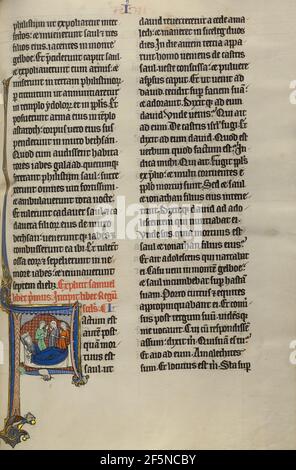 philistiim ut expoliarent inter
fectos: et invenerunt saul et tres
filios eius iacentes in monte
gelboe. Et preciderunt caput saul
et expoliaverunt eum armis. et
miserunt in terram philistinor
per circuitum ut annuntiaretur
in templo ydolor et in pplis. Et
posuerunt arma eius in templo
astaroth. corpus vero eius sus
penderunt in muro bethsan.
Quod cum audissent habita
tores iabes galaad quecumque
fecerant philistiim saul. surrex
erunt omnes viri fortissimi
et ambulaverunt tota nocte.
Et tulerunt cadaver saul et ca
davera filior eius de muro
bethsan. veneruntque iabes et
combusserunt ea ibi. Et tulerunt
ossa eor et sepelierunt in ne
more iabes. et ieiunaverunt
septem diebus. Explicit samuel
liber primus. Incipit liber Regum
scds.
actum est
autem post
quam mor
tuus est
saul. ut
david reverteretur a cede amale
ch. et maneret in siceleg duos
dies. In die autem tercia appa
ruit homo veniens de castris
saul veste conscissa. et pulvere
aspersus caput. Et ut venit ad
david. cecidit sup faciem suam
et adoravit. Dixitque ad eum
david. Unde venis? Qui ait
ad eum. De castris isrl fugi. Et
dixit ad eum david. Quod est
verbum quod factum est? In
dica michi. Qui ait. Fugit pplus
ex prelio. et multi corruentes e
pplo mortui sunt. Sed et saul
et ionathas filius eius
Dixitque david ad adole
scentem qui nuntiabat ei.
Unde scis quia mortuus est
saul et ionathas filius eius?
Et ait adolescens qui narrabat
ei. Casu veni in monte gelboe.
et saul incumbebat sup hastam
suam. Porro currus et equites
appropinquabant ei. Et conver
sus post tergum suum. vidensque
me vocavit. Cui cum respondisse
assum. dixit m. Quisnam es tu?
Et aio ad eum. Amalechites
sum. Et locutus est m. Sta sup
alamy
Image ID: 2F5NCBY
www.alamy.com